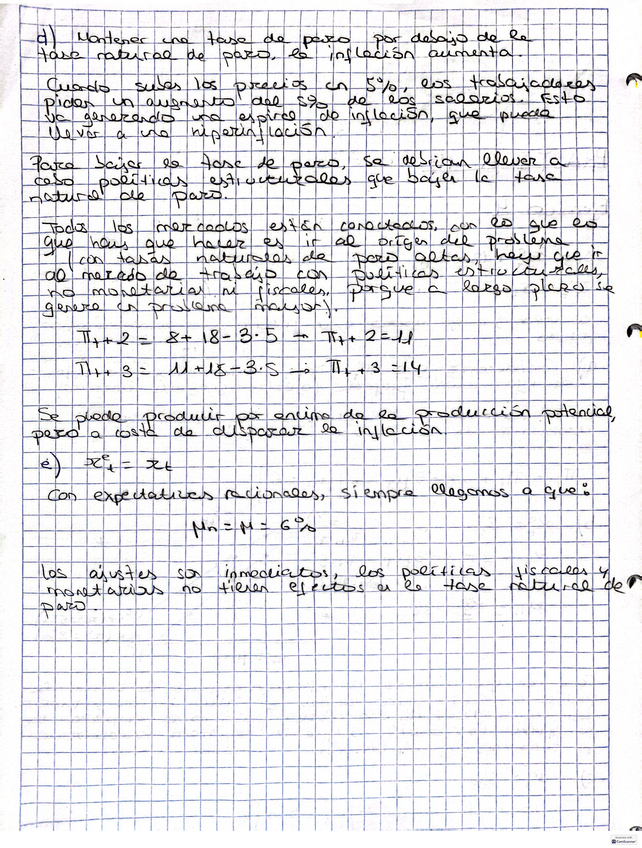 d) Mantener una tasa de paro por debajo de la
tasa natural de paro, la inflación aumenta.
Cuando suben los precios un 5%, los trabajadores
piden un aumento del 5% de los salarios. Esto
va generando una espiral de inflación, que puede
llevar a una hiperinflación.
Para bajar la tasa de paro, se debrian llevar a
cabo políticas estructurales que bajen la tasa
natural de paro.
Todos los mercados están conectados, con lo que lo
que hay que hacer es ir al origen del problema
(con tasas naturales de paro altas, hay que ir
al mercado de trabajo con políticas estructurales,
no monetarias ni fiscales, porque a largo plazo se
genera un problema mayor).
π_t+2 = 8 + 18 - 3·5 → π_t+2 = 11
π_t+3 = 11 + 18 - 3·5 → π_t+3 = 14
Se puede producir por encima de la producción potencial,
pero a costa de disparar la inflación.
e) x^e_t = x_t
Con expectativas racionales, siempre llegamos a que:
μn = μ = 6%
Los ajustes son inmediatos, las políticas fiscales y
monetarias no tienen efectos en la tasa natural de
paro.
CamScanner